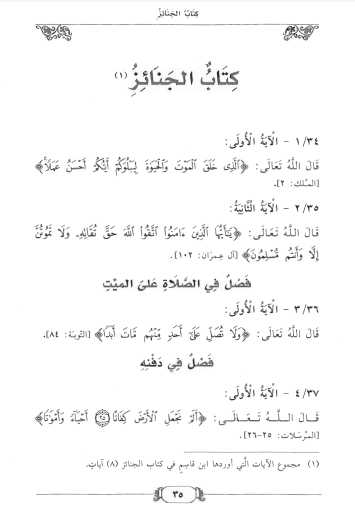 كِتَابُ الجَنَائِزِ
كِتَابُ الجَنَائِزِ (١)
١/٣٤ - الْآيَةُ الْأُولَى:
قَالَ اللَّهُ تَعَالَى: ﴿ٱلَّذِى خَلَقَ ٱلْمَوْتَ وَٱلْحَيَوٰةَ لِيَبْلُوَكُمْ أَيُّكُمْ أَحْسَنُ عَمَلًا﴾
[المُلك: ٢].
٢/٣٥ - الْآيَةُ الثَّانِيَةُ:
قَالَ اللَّهُ تَعَالَى: ﴿يَـٰٓأَيُّهَا ٱلَّذِينَ ءَامَنُوا۟ ٱتَّقُوا۟ ٱللَّهَ حَقَّ تُقَاتِهِۦ وَلَا تَمُوتُنَّ
إِلَّا وَأَنتُم مُّسْلِمُونَ﴾ [آل عِمرَان: ١٠٢].
فَصْلٌ فِي الصَّلَاةِ عَلَى الميِّتِ
٣/٣٦ - الْآيَةُ الْأُولَى:
قَالَ اللَّهُ تَعَالَى: ﴿وَلَا تُصَلِّ عَلَىٰٓ أَحَدٍ مِّنْهُم مَّاتَ أَبَدًا﴾ [التَّوبَة: ٨٤].
فَصْلٌ فِي دَفْنِهِ
٤/٣٧ - الْآيَةُ الْأُولَى:
قَالَ اللَّهُ تَعَالَى: ﴿أَلَمْ نَجْعَلِ ٱلْأَرْضَ كِفَاتًا ۝٢٥ أَحْيَآءً وَأَمْوَٰتًا﴾
[المُرسَلات: ٢٥-٢٦].
(١) مجموع الآيات الَّتي أوردها ابن قاسِم في كتاب الجنائز (٨) آياتٍ.
٣٥